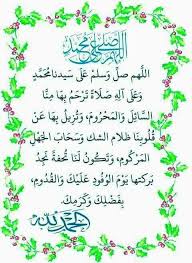 اللهم صل على محمد
اللهم صل وسلم على سيدنا محمد
وعلى آله صلاة ترحم بها منا
السائل والمحروم، وتزيل بها عن
قلوبنا ظلام الشك وسحاب الجهل
المركوم، وتكون لنا تحفة نجد
بركتها يوم الوفود عليك والقدوم،
بفضلك وكرمك.
الحمد لله